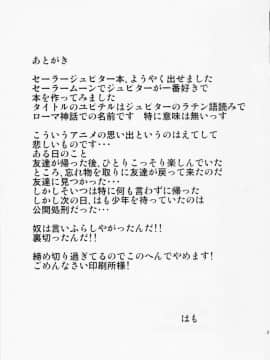 あとがき
セーラージュピター本、ようやく出せました
セーラームーンでジュピターが一番好きで
本を作ってみました
タイトルのユピテルはジュピターのラテン語読みで
ローマ神話での名前です　特に意味は無いっす
こういうアニメの思い出というのはえてして
悲しいものです・・・
ある日のこと
友達が帰った後、ひとりこっそり楽しんでいた
ところ、忘れ物を取りに友達が戻って来たのだ
友達に見つかった・・・
しかしそいつは特に何も言わずに帰った
しかし次の日、はも少年を待っていたのは
公開処刑だった・・・
奴は言いふらしやがったんだ!!
裏切ったんだ!!
締め切り過ぎてるのでこのへんでやめます!
ごめんなさい印刷所様!
はも